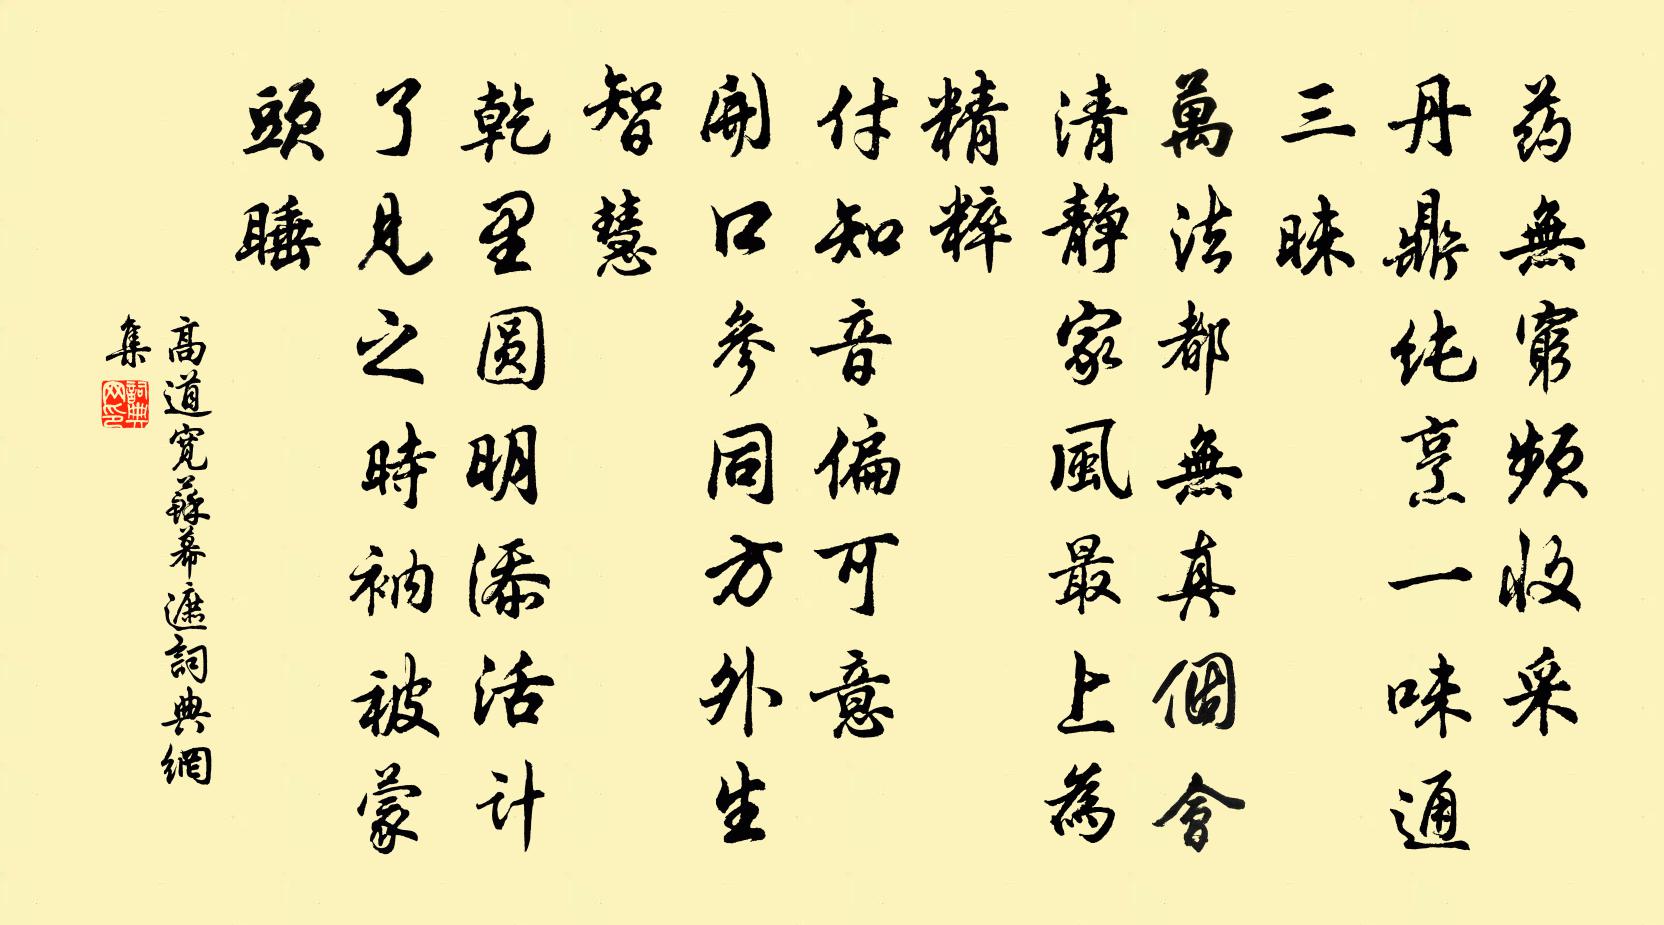 药無窮頻收采
丹鼎纯烹一味通
三昧
萬法都無真個會
清静家風最上為
精粹
付知音偏可意
開口參同方外生
智慧
乾里圆明添活计
了見之時衲被蒙
頭睡
高道寬蘇幕遮詞典網
集
詞典
网印